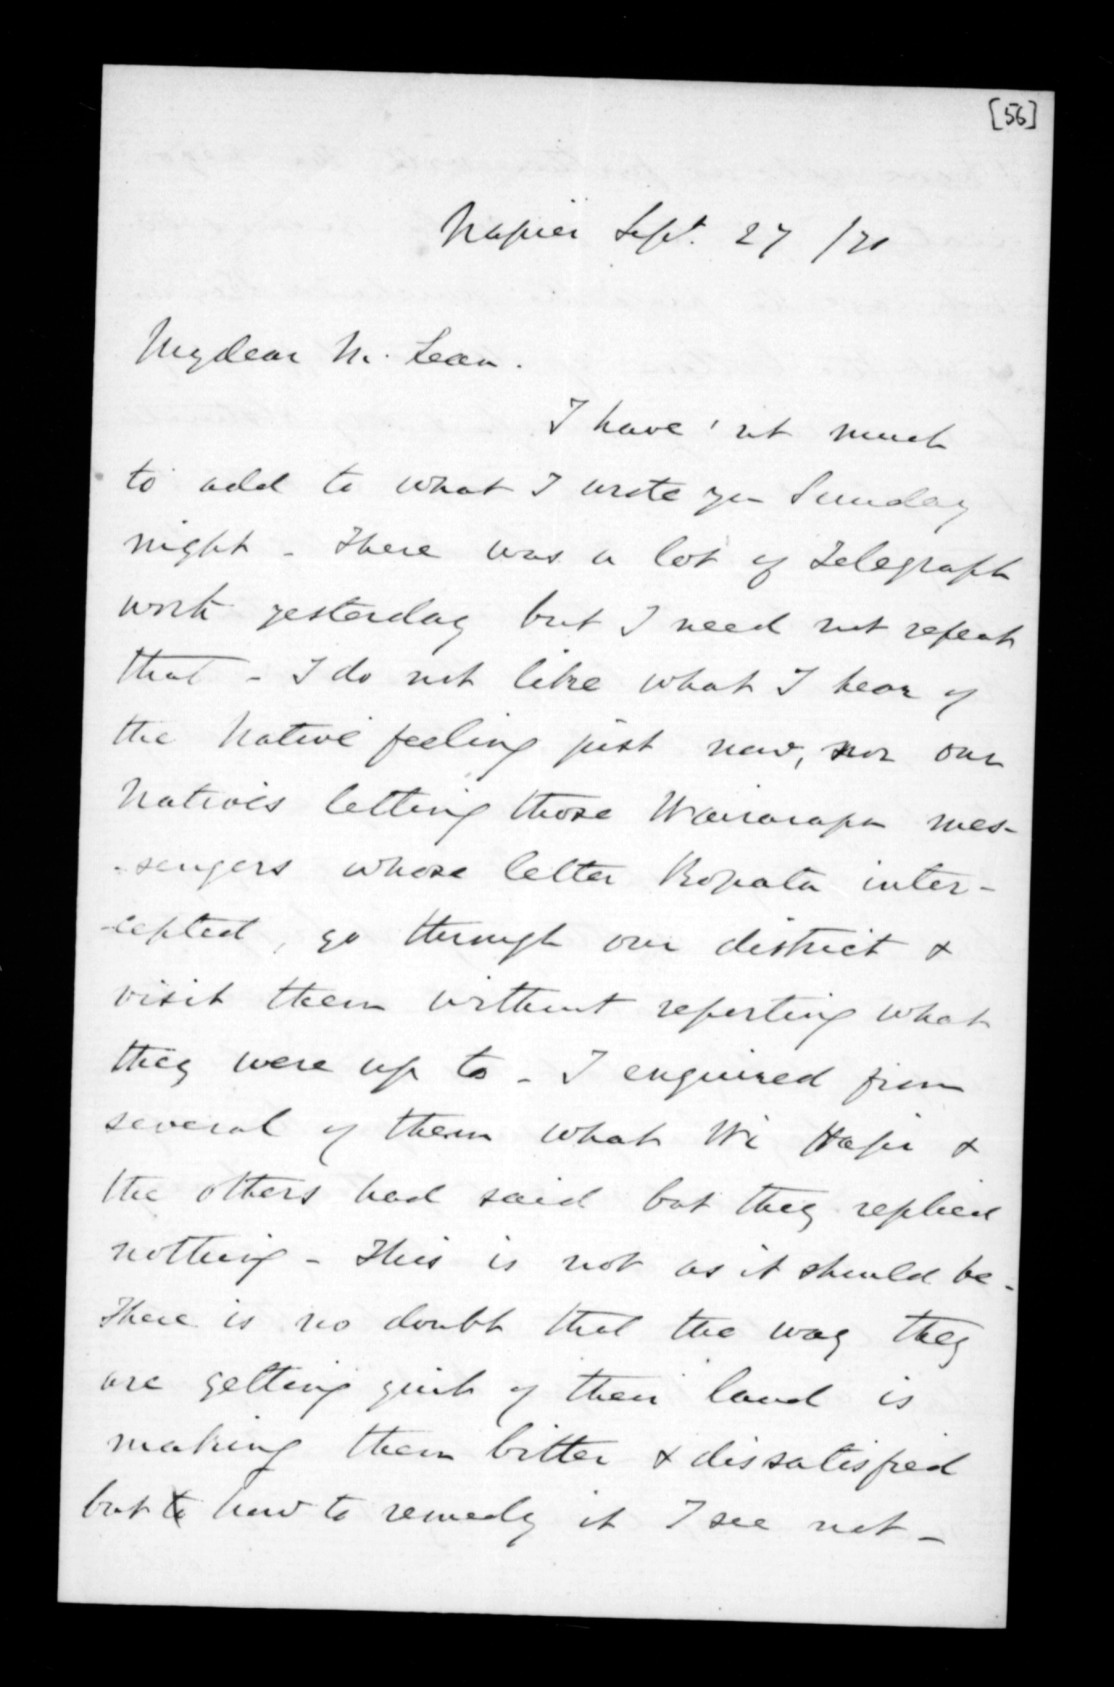 [56]
Napier Sept. 27 /70
My dear McLean.
I have 'nt much
to add to what I wrote you Sunday
night - There was a lot of Telegraph
work yesterday but I need not repeat
that - I do not like what I hear of
the Native feeling just now, nor our
Natives letting those Wairarapa mes-
-sengers whose letter Ropata inter-
-cepted, go through our district &
visit them without reporting what
they were up to - I enquired from
several of them what Wi Hapi &
the others had said but they replied
nothing - This is not as it should be -
There is no doubt that the way they
are getting quit of their land is
making them bitter & dissatisfied
but to how to remedy it I see not -